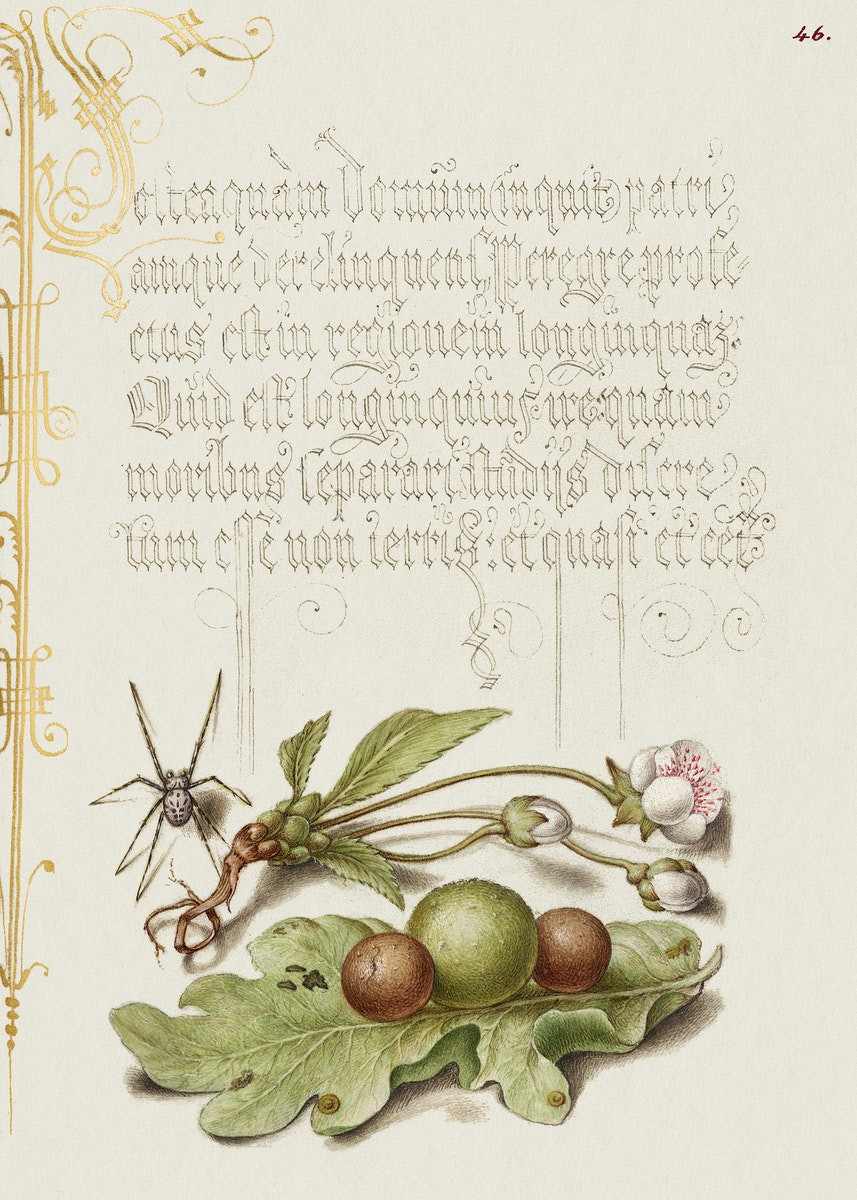 46.
Posteaquàm Domum (inquit) patri
amque derelinquens, Peregre profe-
ctus est in regionem longinquaz:
Quid est longinquius ire: quam
moribus separari, studijs discre
tum esse non terris: et quasi et cet